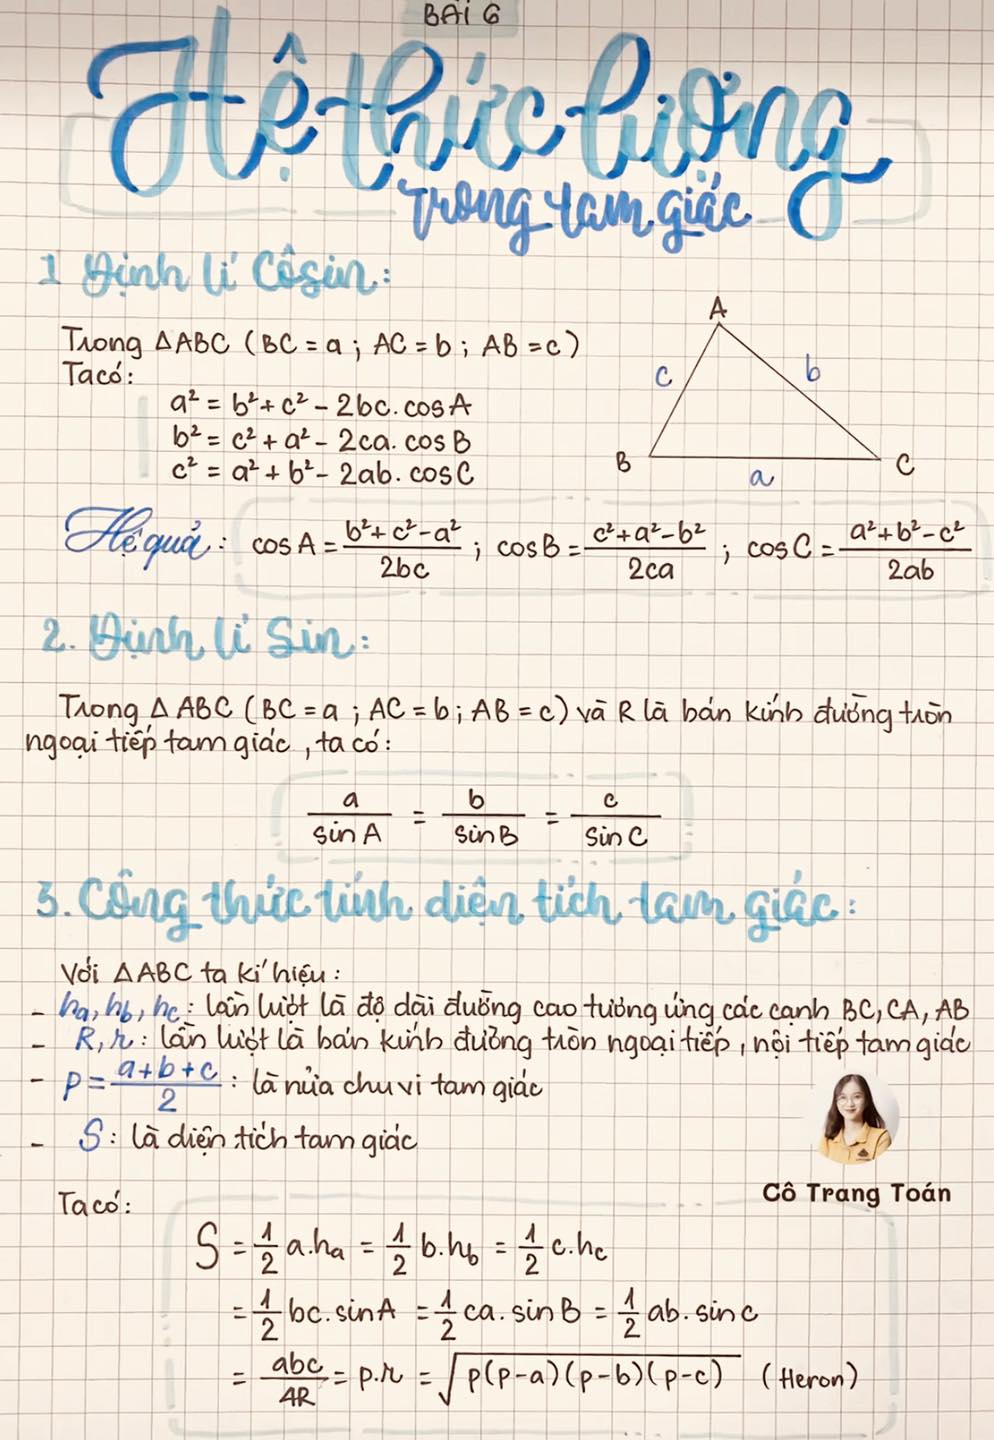 BÀI 6
Hệ thức lượng
trong tam giác
1 Định lí Côsin:
Trong ΔABC (BC = a ; AC = b ; AB = c)
Ta có:
a² = b² + c² - 2bc. cosA
b² = c² + a² - 2ca. cosB
c² = a² + b² - 2ab. cosC
A
c b
B a C
Hệ quả: cosA = (b² + c² - a²)/2bc ; cosB = (c² + a² - b²)/2ca ; cosC = (a² + b² - c²)/2ab
2. Định lí Sin:
Trong ΔABC (BC = a ; AC = b ; AB = c) và R là bán kính đường tròn
ngoại tiếp tam giác, ta có:
a/sinA = b/sinB = c/sinC
3. Công thức tính diện tích tam giác:
Với ΔABC ta kí hiệu:
- hₐ, h_b, h_c: lần lượt là độ dài đường cao tương ứng các cạnh BC, CA, AB
- R, r: lần lượt là bán kính đường tròn ngoại tiếp, nội tiếp tam giác
- p = (a + b + c)/2 : là nửa chu vi tam giác
- S: là diện tích tam giác
Cô Trang Toán
Ta có:
S = 1/2 a.hₐ = 1/2 b.h_b = 1/2 c.h_c
= 1/2 bc.sinA = 1/2 ca.sinB = 1/2 ab.sinc
= abc/4R = p.r = √(p(p-a)(p-b)(p-c)) (Heron)